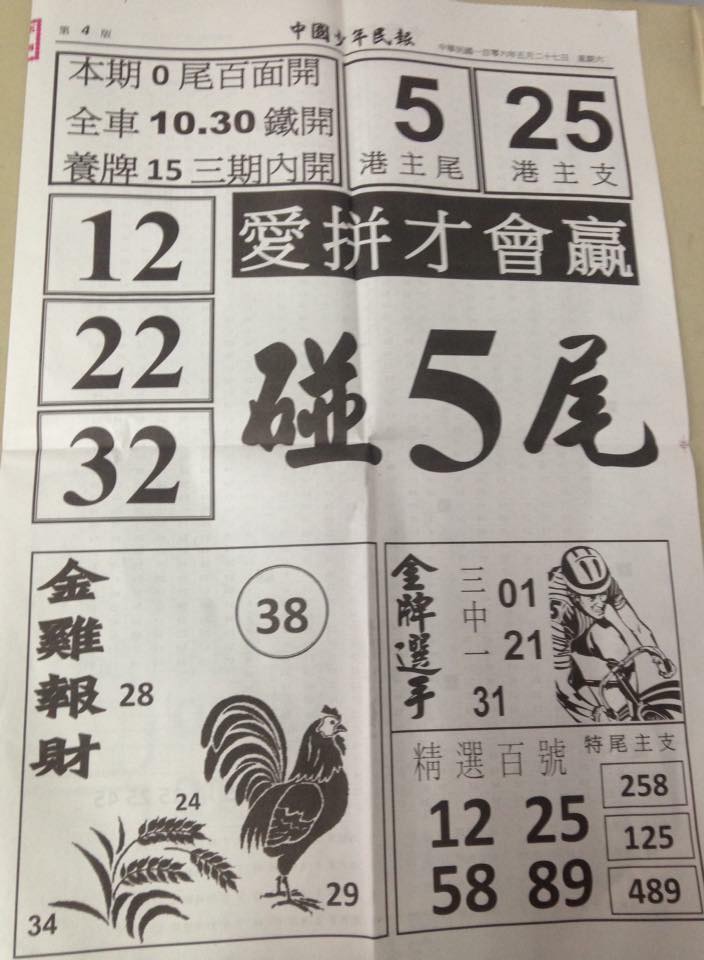 第 4 版
中國少年民報
中華民國一百零六年五月二十七日 星期六
本期0尾百面開
全車10.30鐵開
養牌15三期內開
5
港主尾
25
港主支
12
22
32
愛拼才會贏
碰5尾
金雞報財
38
28
24
29
34
金牌選手
三中一
01
21
31
精選百號
12 25
58 89
特尾主支
258
125
489